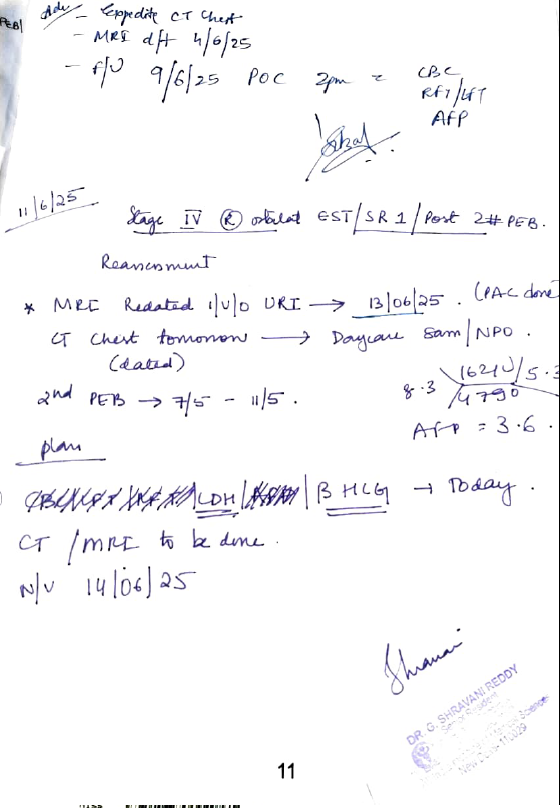 PEB/
Adv - Expedite CT Chest
- MRI dft 4/6/25
- f/u 9/6/25 POC 2pm c̄ CBC
RFT/LFT
AFP
11/6/25
Stage IV Ⓡ orbital EST/SR1/Post 2# PEB.
Reassessment
* MRI Redated i/v/o URI → 13/06/25. (PAC done)
CT Chest tomorrow → Daycare 8am/NPO
(dated)
2nd PEB → 7/5 - 11/5.
8.3 /5.3
4790
AFP = 3.6.
plan
LDH | β HCG → Today.
CT /MRI to be done.
N/V 14/06/25
Shravani
DR. G. SHRAVANI REDDY
Senior Resident
11